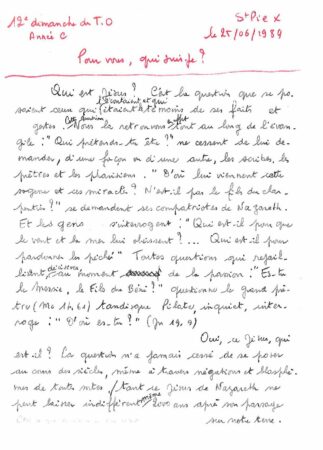 12e dimanche du T.O
St Pie X
Année C
le 25/06/1989
Pour vous, qui suis-je ?
Qui est Jésus ? C'est la question que se po-
saient ceux qui l'écoutaient et qui étaient témoins de ses faits et
gestes. Cette question, nous la retrouvons en effet tout au long de l'évan-
gile : "Qui prétends-tu être ?" ne cessent de lui de-
mander, d'une façon ou d'une autre, les scribes, les
prêtres et les pharisiens. "D'où lui viennent cette
sagesse et ces miracles ? N'est-il pas le fils du char-
pentier ?" se demandent ses compatriotes de Nazareth.
Et les gens s'interrogent : "Qui est-il pour que
le vent et la mer lui obéissent ?... Qui est-il pour
pardonner les péchés" Toutes questions qui rejail-
lissent au moment de la passion : "Es-tu
le Messie, le Fils du Béni ?" questionne le grand prê-
tre (Mc 14, 61) tandis que Pilate, inquiet, inter-
roge : "D'où es-tu ?" (Jn 19, 9)
Oui, ce Jésus, qui
est-il ? La question n'a jamais cessé de se poser
au cours des siècles, même à travers négations et blasphè-
mes de toutes sortes, tant ce Jésus de Nazareth ne
peut laisser indifférent même 2000 ans après son passage
sur notre terre.